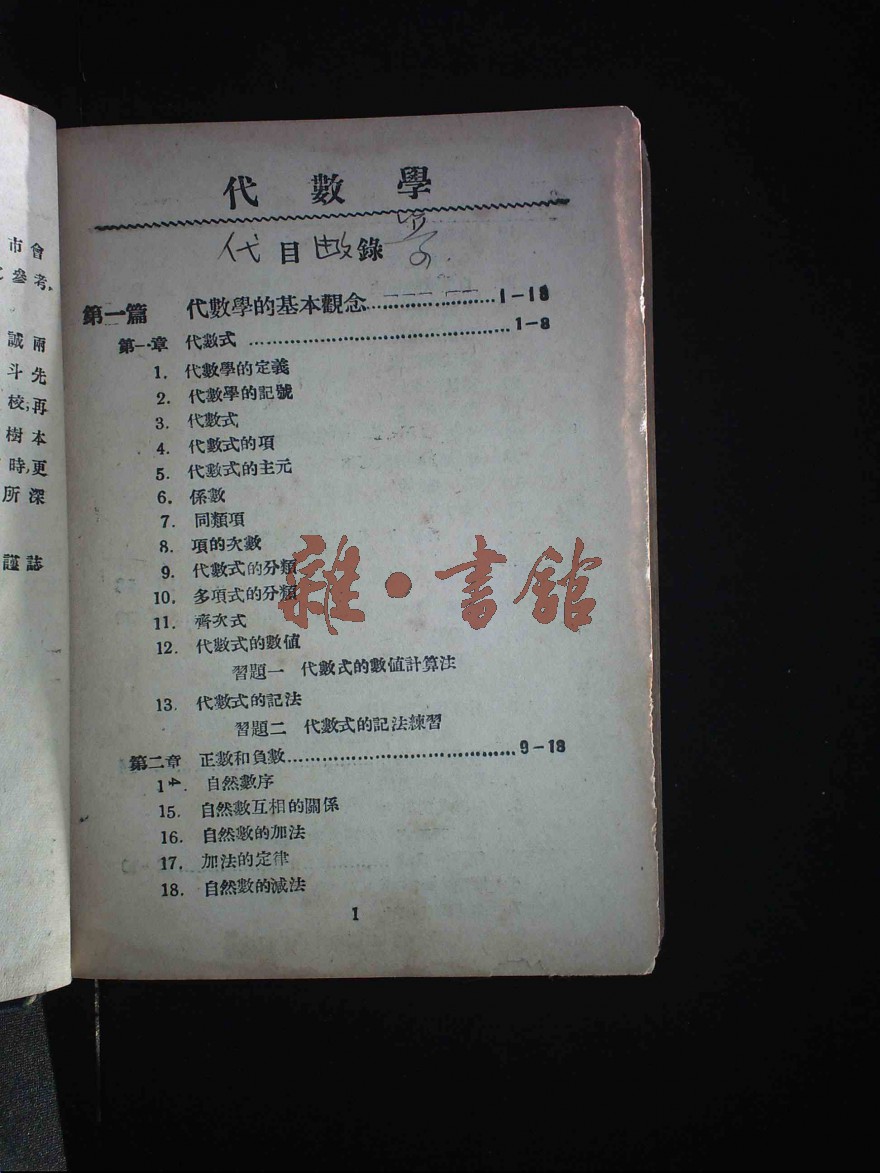 代數學
代目数錄学
第一篇 代數學的基本觀念…………………1-18
第一章 代數式……………………………………1-8
1. 代數學的定義
2. 代數學的記號
3. 代數式
4. 代數式的項
5. 代數式的主元
6. 係數
7. 同類項
8. 項的次數
9. 代數式的分類
10. 多項式的分類
11. 齊次式
12. 代數式的數値
習題一 代數式的數値計算法
13. 代數式的記法
習題二 代數式的記法練習
第二章 正數和負數……………………………………9-18
14. 自然數序
15. 自然數互相的關係
16. 自然數的加法
17. 加法的定律
18. 自然數的減法
I
雜·書舘
市會
參考,
誠兩
斗先
校;再
樹本
時,更
所深
謹誌